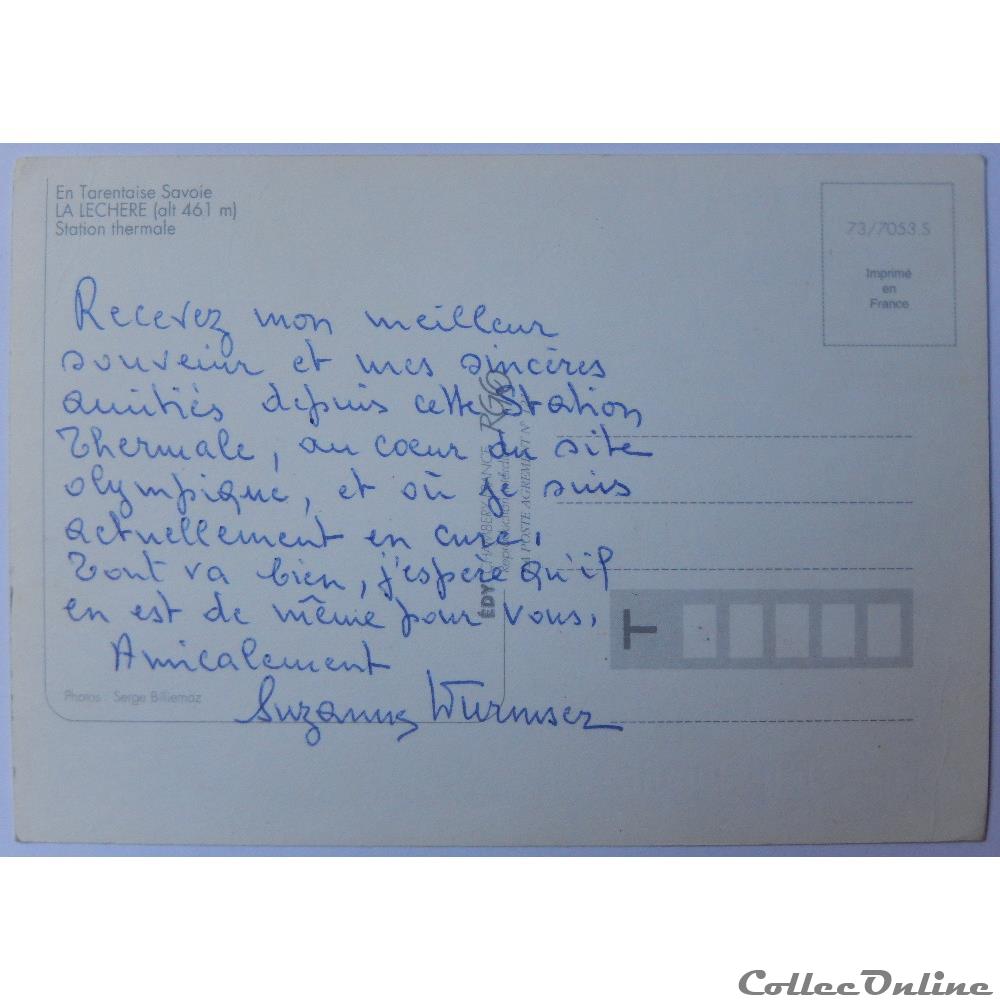 En Tarentaise Savoie
LA LECHERE (alt 461 m)
Station thermale
73/7053.S
Imprimé
en
France
Recevez mon meilleur
souvenir et mes sincères
amitiés depuis cette Station
Thermale, au coeur du site
olympique, et où je suis
actuellement en cure.
Tout va bien, j'espère qu'il
en est de même pour vous.
Amicalement
Suzanne Wurmser
ÉDY CHAMBERY FRANCE
Reproduction
LA POSTE AGREMENT N°
T
Photos : Serge Billiemaz
CollecOnline